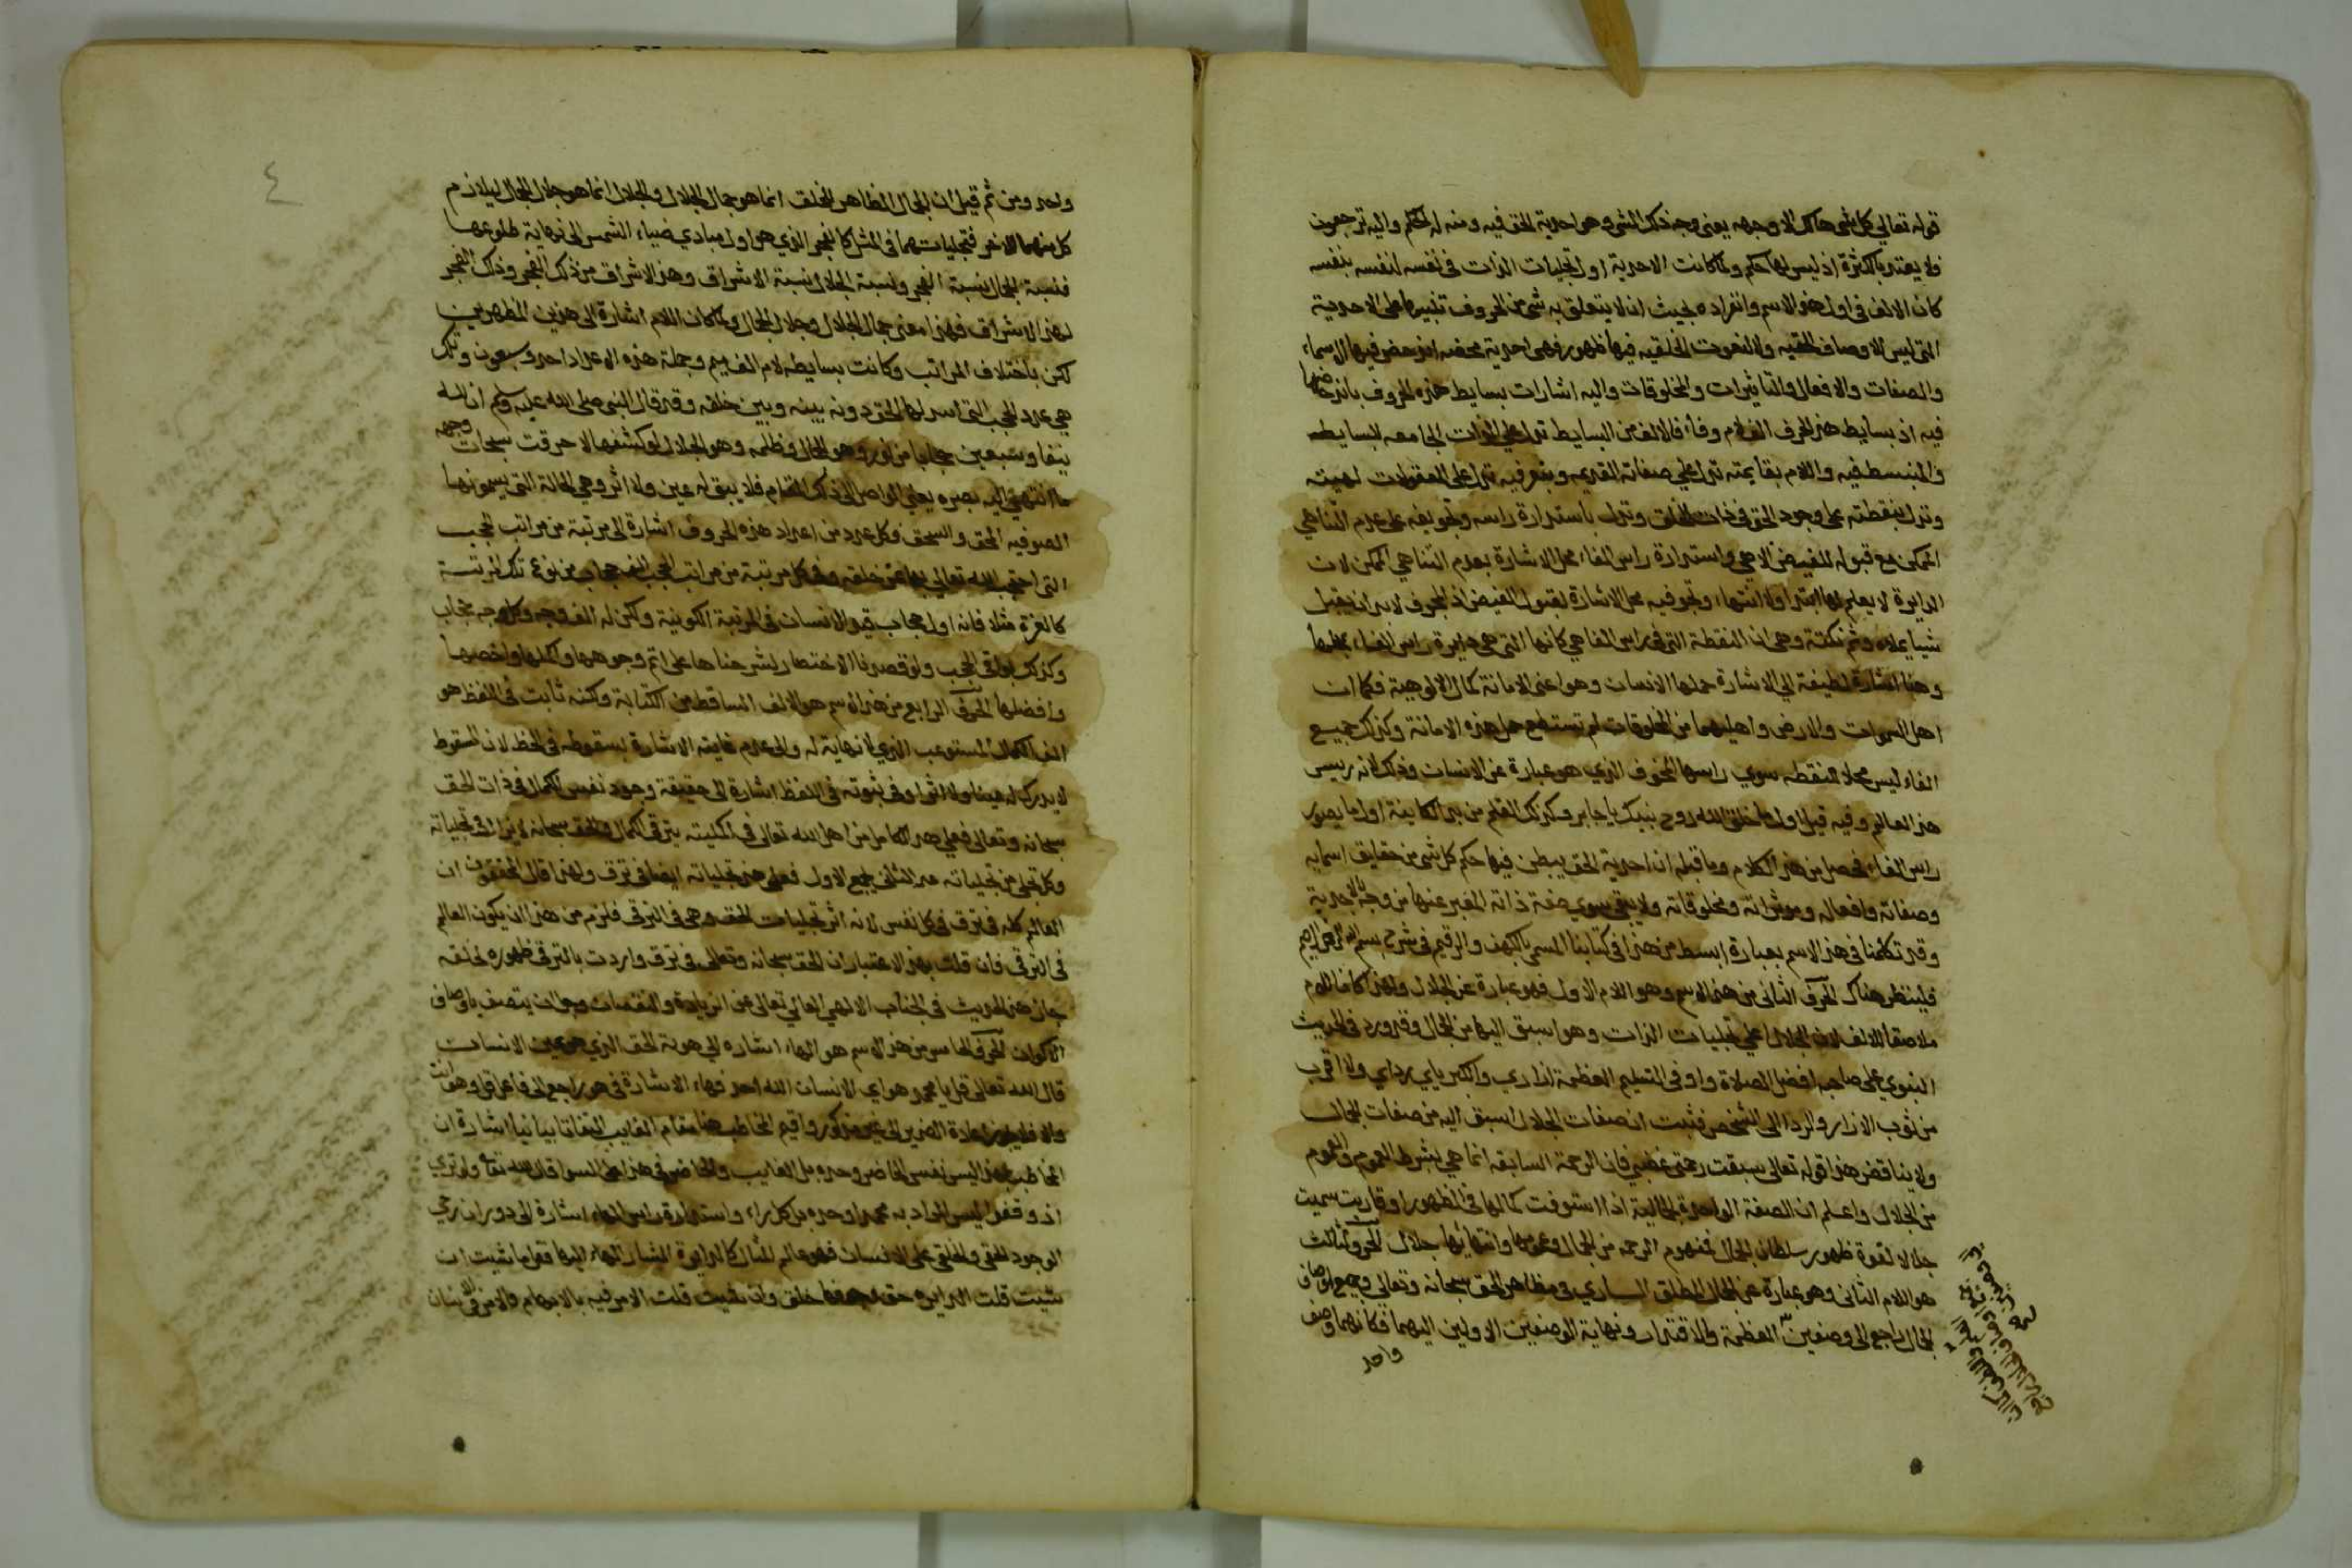 قوله تعالى كل شى هالك الا وجهه يعنى وجه ذلك الشى وهو احدية الحق فيه ومنه له الحكم واليه ترجعون
ولا يعتبر بالكثرة اذ ليس لها حكم ولما كانت الاحدية اول تجليات الذات فى نفسه لنفسه بنفسه
كان الالف فى اول هذا الاسم وانفراده بحيث ان لا يتعلق به شى من الحروف تنبيها على الاحدية
التى ليس للاوصاف الحقيه ولا النعوت الخلقيه فيها ظهور فهى احدية محضه اندحض فيها الاسماء
والصفات والافعال والتاثيرات والمخلوقات واليه اشارات بسايط هذه الحروف باندحاضها
فيه اذ بسايط هذا الحرف الف لام وفاء فالالف من البسايط تدل على الذات الجامعه للبسايطه
والمنبسط فيه واللام بقايمته تدل على صفاته القديمه وبتعرفيه تدل على المعقولات
وتدل بنقطته على وجود الحق فى ذات الخلق وتدل باستدارة راسه وتجويفه على عدم التناهي
الممكن مع قبوله للفيض الالهي واستدارة راس الفاء محل الاشارة بعدم التناهي الممكن لان
الدايرة لا يعلم لها ابتدا ولا انتهاء وتجويفه محل الاشارة لقبول الفيض اذ المجوف لا بد ان يقبل
شيا يملاه وثم نكتة وهي ان النقطة التى فى راس الفا هي كانها التى هي دايرة راس الفاء محلها
وهنا اشارة لطيفة الي الاشارة حملها الانسان وهو اعنى الامانة كمال الالوهية فكما ان
اهل السموات والارض واهليهما من المخلوقات لم تستطع حمل هذه الامانة وكذلك جميع
الفاء ليس محلا للنقطه سوي راسها المجوف الذي هو عبارة عن الانسان وذلك لانه رييس
هذا العالم وفيه قيل اول ما خلق الله روح نبيك يا جابر وكذلك القلم من يد الكاتبة اول ما يصور
راس الفاء فحصل من هذا الكلام وما قبله ان احدية الحق يبطن فيها حكم كل شى من حقايق اسمايه
وصفاته وافعاله وموثراته ومخلوقاته ولا يبقى سوي صفة ذاته المعبر عنها من وجه بالاحدية
وقد تكلمنا فى هذا الاسم بعبارة ابسط من هذا فى كتابنا المسمى بالكهف والرقيم فى شرح بسم الله الرحمن الرحيم
فلينظر هناك الحرف الثانى من هذا الاسم وهو اللام الاول فهو عبارة عن الجلال ولهذا كان اللام
ملاصقا للالف لان الجلال اعلى تجليات الذات وهو اسبق اليها من الجمال وقد ورد فى الحديث
النبوي على صاحبه افضل الصلاة واوفى التسليم العظمة ازاري والكبرياي رداي ولا اقرب
من ثوب الازار والردا الى الشخص فثبت ان صفات الجلال اسبق اليه من صفات الجمال
ولا يناقض هذا قوله تعالى سبقت رحمتى غضبي فان الرحمة السابقه انما هي بشرط العموم والعموم
من الجلال واعلم ان الصفة الواحدة الجمالية اذا استوفت كمالها فى الظهور او قاربت سميت
جلالا لقوة ظهور سلطان الجمال فمفهوم الرحمه من الجمال وعمومها وانتهايها جلال الحرف الثالث
هو اللام الثانى وهو عبارة عن الجمال المطلق الساري فى مظاهر الحق سبحانه وتعالى وجميع اوصاف
الجمال راجع الى وصفين العظمة والاقتدار ونهاية الوصفين الاولين اليهما فكانهما وصف
واحد
واحد ومن ثم قيل ان الجمال الظاهر للخلق انما هو جمال الجلال والجلال انما هو جلال الجمال لتلازم
كل منهما الاخر فتجلياتهما فى المثل كالفجر الذي هو اول مبادي ضياء الشمس الى نهاية طلوعها
فنسبة الجمال نسبة الفجر ونسبة الجلال نسبة الاشراق وهذا الاشراق من ذلك الفجر وذلك الفجر
لهذا الاشراق فهذا معنى جمال الجلال وجلال الجمال ولما كان اللام اشارة الى هذين المظهرين
لكن باختلاف المراتب وكانت بسايطه لام الف ميم وجملة هذه الاعداد احد وسبعون وتلك
هي عدد الحجب التى اسدلها الحق دونه بينه وبين خلقه وقد قال النبى صلى الله عليه وسلم ان لله
نيفا وسبعين حجابا من نور وهو الجمال وظلمه وهو الجلال لو كشفها لاحرقت سبحات وجهه
ما انتهى اليه بصره يعنى الواصل الى ذلك المقام فلا يبقى له عين ولا اثر وهي الحالة التى يسمونها
الصوفيه المحق والسحق وكل عدد من اعداد هذه الحروف اشارة الى مرتبة من مراتب الحجب
التى احتجب الله تعالى بها عن خلقه وفى كل مرتبة من مراتب الحجب الف حجاب من نوع تلك المرتبة
كالعزة مثلا فانه اول حجاب قيد الانسان فى المرتبة الكونية ولكن له الف وجه وكل وجه حجاب
وكذلك بواقى الحجب ولولا قصدنا الاختصار لشرحناها على اتم وجوهها واكملها واخصها
وافضلها الحرف الرابع من هذا الاسم هو الالف الساقط من الكتابة ولكنه ثابت فى اللفظ هو
الف الكمال المستوعب الذي لا نهاية له والى عدم غايته الاشارة بسقوطه فى الخط لان السقوط
لا يدرك له عينا ولا اثرا وفى ثبوته فى اللفظ اشارة الى حقيقة وجود نفس الكمال فى ذات الحق
سبحانه وتعالى فعلى هذا الكامل من اهل الله تعالى فى اكمليته يترقى الكمال والحق سبحانه لا يزال فى تجلياته
وكل تجلى من تجلياته عند الثانى يجمع الاول فعلى هذا تجلياته ايضا فى ترق ولهذا قال المحققون ان
العالم كله فى ترق فى كل نفس لانه اثر تجليات الحق وهي فى الترقى فلزم من هذا ان يكون العالم
فى الترقى فان قلت بهذا الاعتبار ان الحق سبحانه وتعالى فى ترق واردت بالترقى ظهوره لخلقه
جاز هذا الحديث فى الجناب الالهي تعالى عن الزيادة والنقصان وجل ان يتصف باوصاف
الاكوان الحرف الخامس من هذا الاسم هو الهاء اشاره الى هوية الحق الذي هو عين الانسان
قال الله تعالى قل يا محمد هو اي الانسان الله احد فهاء الاشارة فى هو راجع الى فاعل قل وهو انت
والا فلا يجوز اعادة الضمير الى غير مذكور واقيم المخاطب هنا مقام الغايب التفاتا بيانيا اشارة ان
المخاطب بهذا ليس نفس الحاضر وحده بل الغايب والحاضر فى هذا على السوا قال الله تعالى ولو ترى
اذ وقفوا ليس المراد به محمدا وحده بل كل راء واستدارة راس الهاء اشارة الى دوران رحي
الوجود الحقى والخلقى على الانسان فهو فى عالم المثال كالدايرة المشار الهاء اليها فقل ما شيت ان
شيت قلت الدايره حق وجوفها خلق وان شيت قلت الامر فيه بالابهام والامر فى الانسان
٤